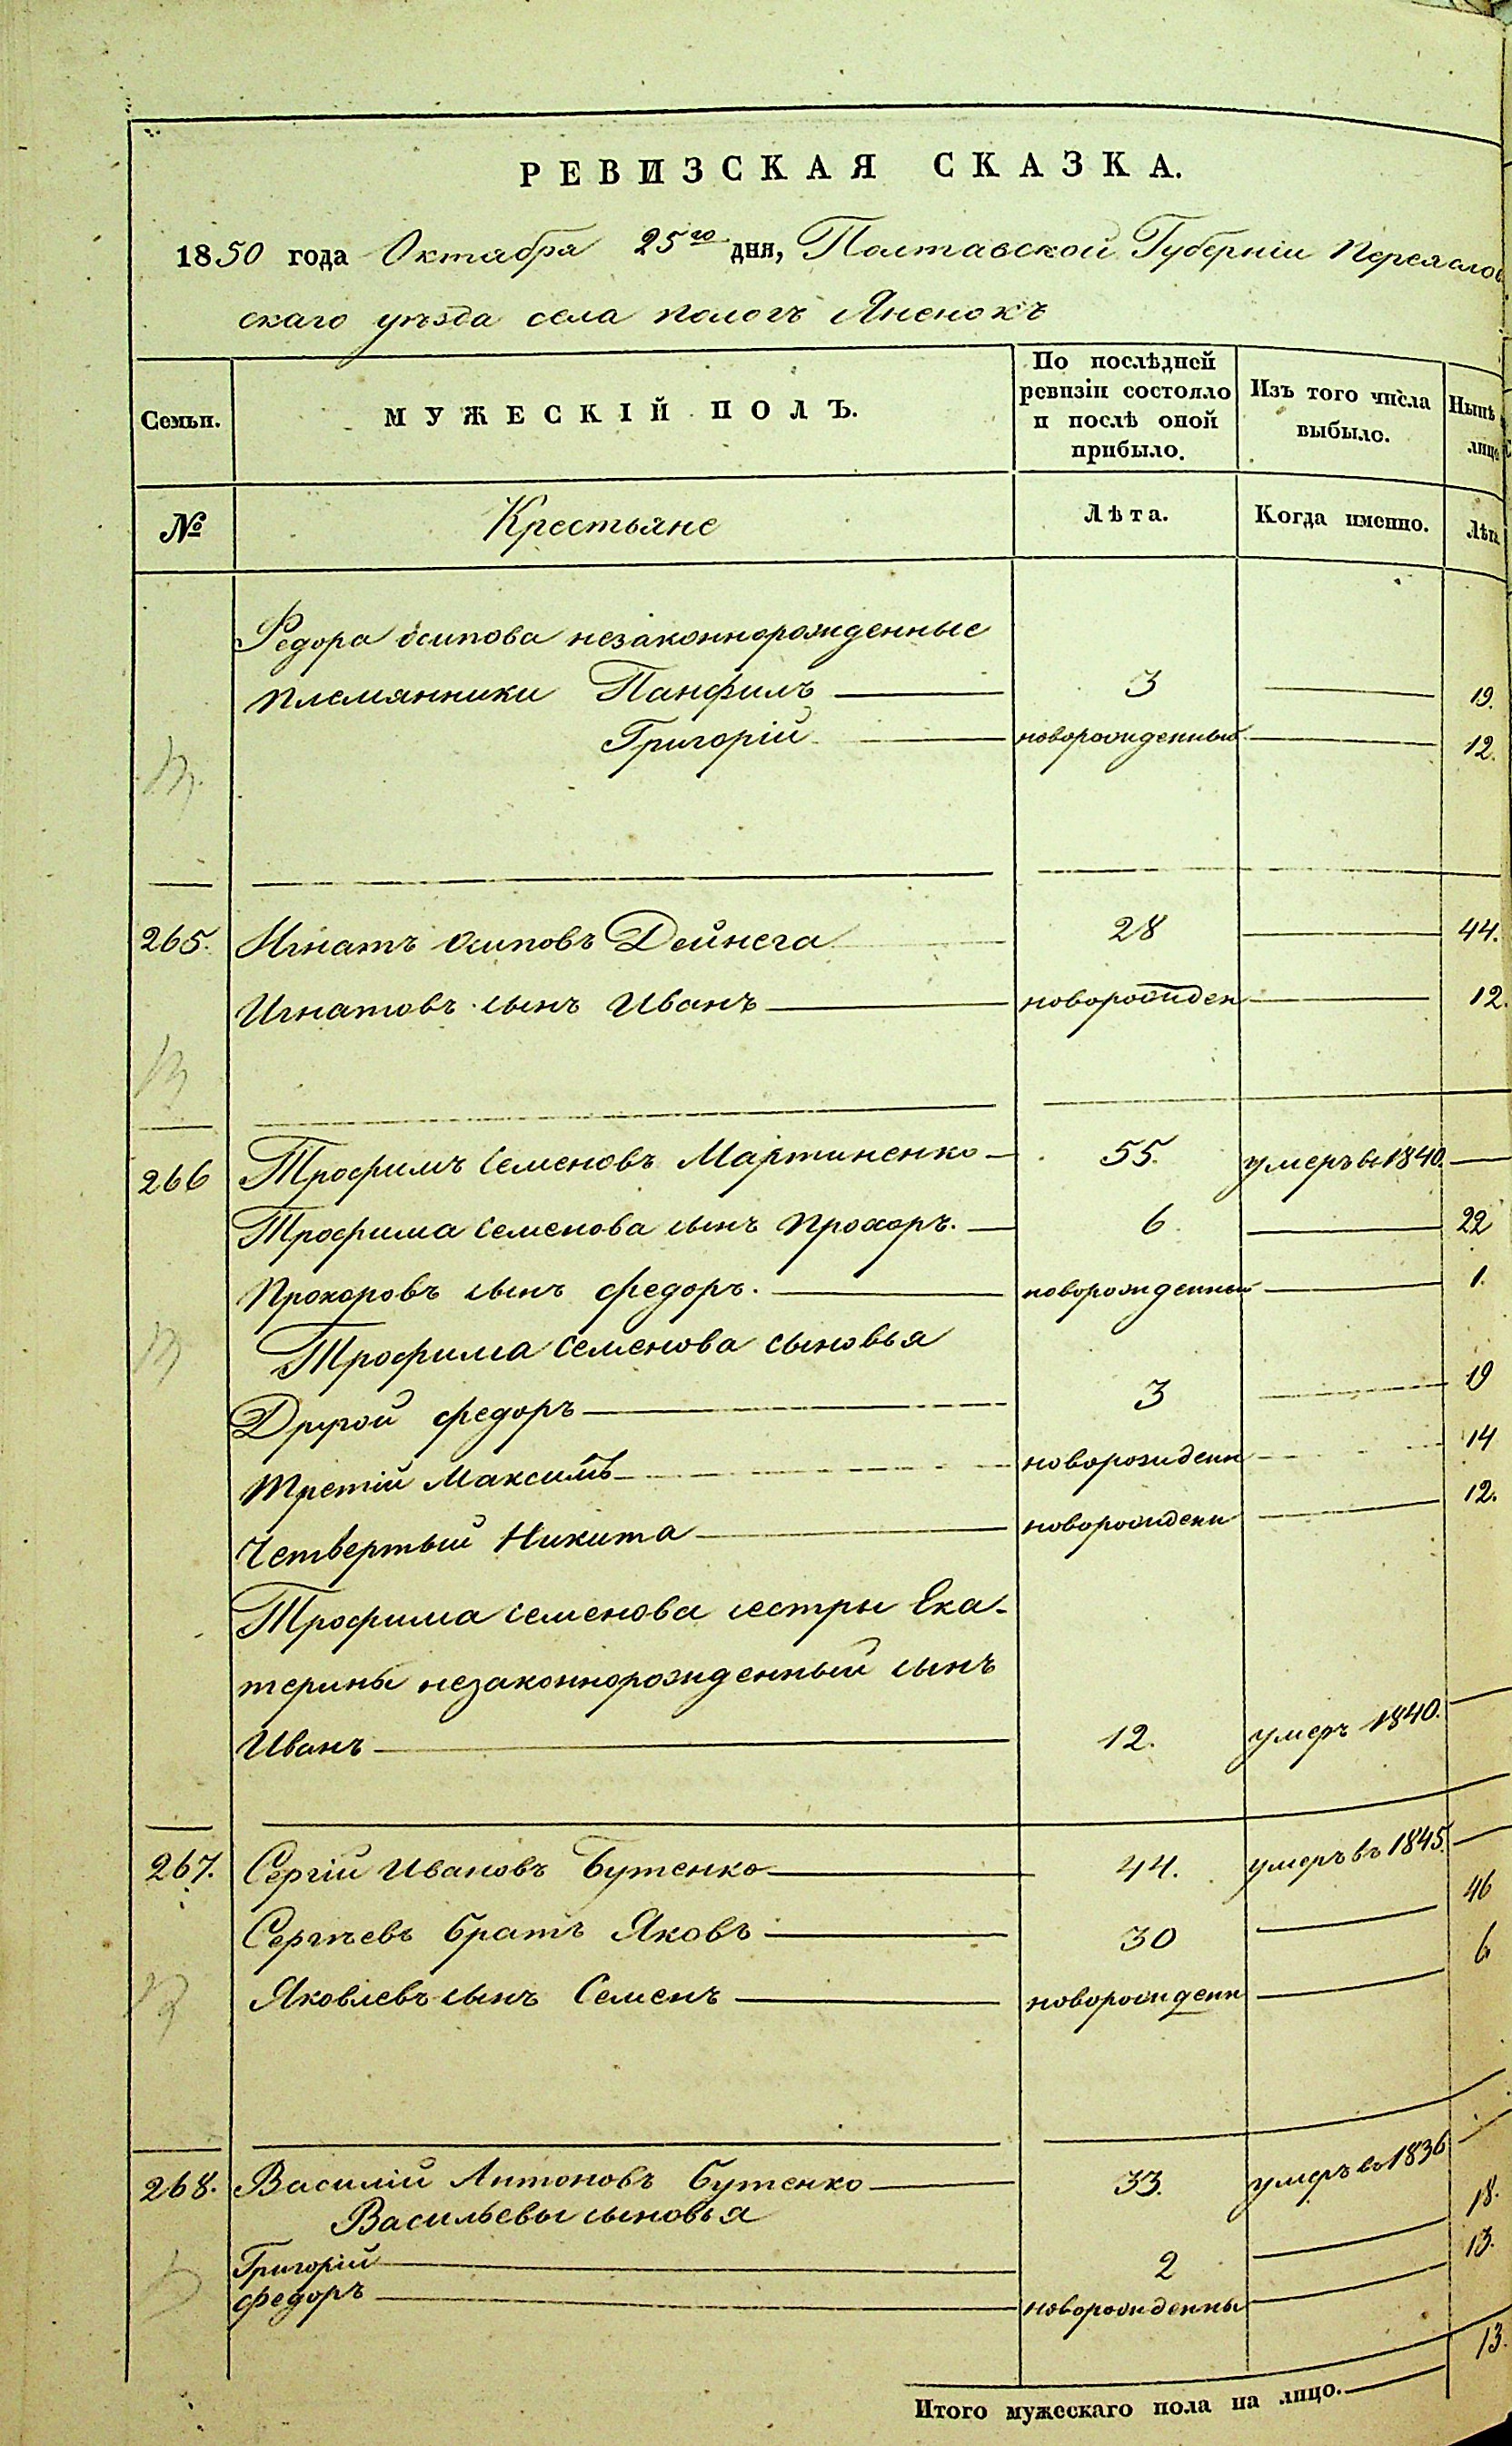 РЕВИЗСКАЯ СКАЗКА.
1850 года Октября 25го дня, Полтавской Губерніи Переяслов
скаго уѣзда села пологъ Яненокъ
Семьи.
МУЖЕСКІЙ ПОЛЪ.
По послѣдней
ревизіи состояло
и послѣ оной
прибыло.
Изъ того числа
выбыло.
Нынѣ
лицо
№
Крестьяне
Лѣта.
Когда именно.
Лѣта
Федора осипова незаконнорожденные
племянники Панфилъ 3 19.
Григорій новорожденный 12.
265. Игнатъ Осиповъ Дейнега 28 44.
Игнатовъ сынъ Иванъ новорожден 12.
266 Трофимъ Семеновъ Мартиненко 55. умеръ в 1840.
Трофима Семенова сынъ Прохоръ. 6. 22
Прохоровъ сынъ федоръ. новорожденный 1.
Трофима Семенова сыновья
Другой федоръ 3 19
Третій Максимъ новорожденн 14
Четвертый Никита новорожденн 12.
Трофима Семенова сестры Ека-
терины незаконнорожденный сынъ
Иванъ 12. умеръ 1840.
267. Сергій Ивановъ Бутенко 44. умеръ въ 1845.
Сергѣевъ братъ Яковъ 30 46
Яковлевъ сынъ Семенъ новорожденн 6
268. Василій Антоновъ Бутенко 33. умеръ в 1836
Васильевы сыновья
Григорій 2 18.
федоръ новорожденны 13.
Итого мужескаго пола на лицо. 13.